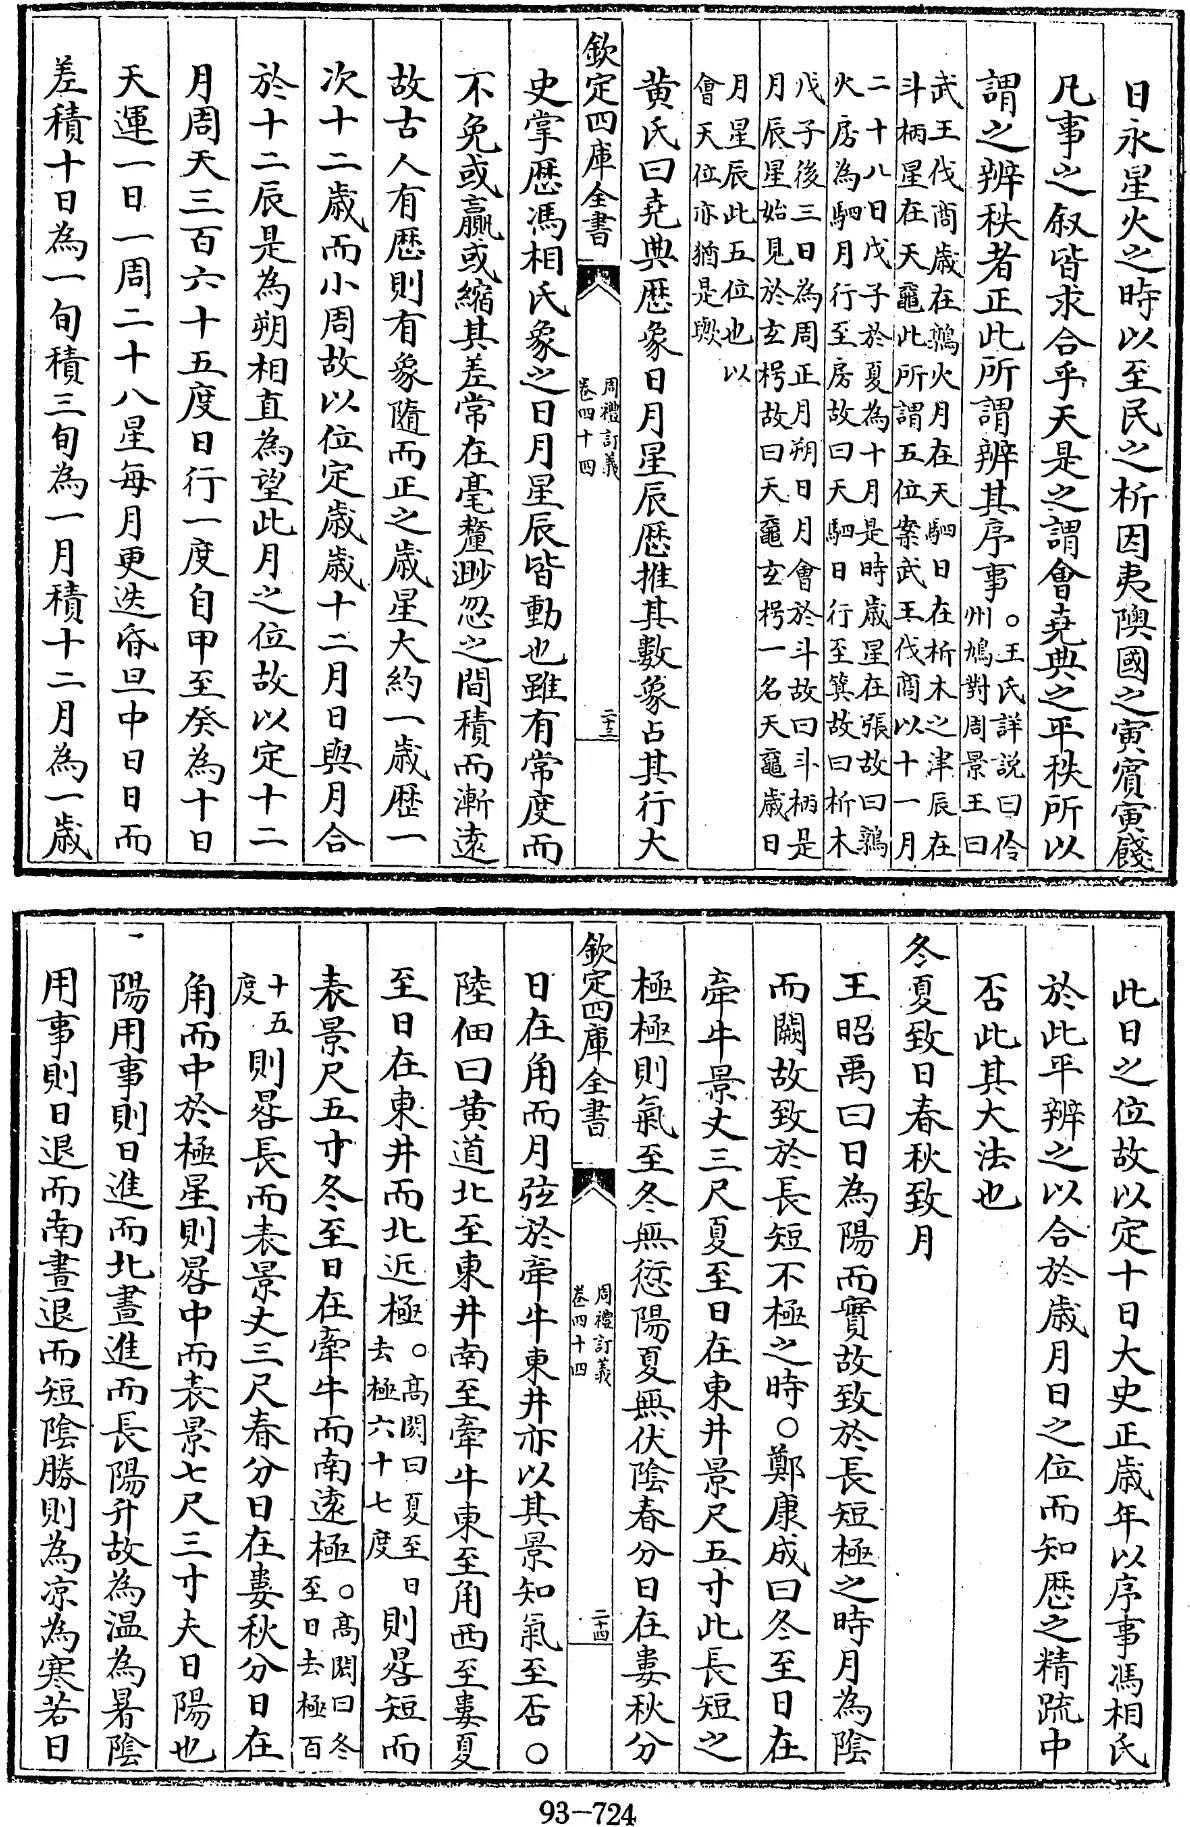 日永星火之時以至民之析因夷隩國之寅賓寅餞
凡事之叙皆求合乎天是之謂會堯典之平秩所以
謂之辨秩者正此所謂辨其序事。王氏詳説曰伶
州鳩對周景王曰
武王伐商歲在鶉火月在天駟日在析木之津辰在
斗柄星在天黿此所謂五位案武王伐商以十一月
二十八日戊子於夏為十月是時歲星在張故曰鶉
火房為駟月行至房故曰天駟日行至箕故曰析木
戊子後三日為周正月朔日月會於斗故曰斗柄是
月辰星始見於玄枵故曰天黿玄枵一名天黿歲日
月星辰此五位也以
會天位亦猶是歟
黄氏曰堯典歷象日月星辰歷推其數象占其行大
欽定四庫全書
周禮訂義
卷四十四
二十三
史掌歷馮相氏象之日月星辰皆動也雖有常度而
不免或贏或縮其差常在毫釐渺忽之間積而漸遠
故古人有歷則有象隨而正之歲星大約一歲歷一
次十二歲而小周故以位定歲歲十二月日與月合
於十二辰是為朔相直為望此月之位故以定十二
月周天三百六十五度日行一度自甲至癸為十日
天運一日一周二十八星每月更迭昏旦中日日而
差積十日為一旬積三旬為一月積十二月為一歲
此日之位故以定十日大史正歲年以序事馮相氏
於此平辨之以合於歲月日之位而知歷之精疏中
否此其大法也
冬夏致日春秋致月
王昭禹曰日為陽而實故致於長短極之時月為陰
而闕故致於長短不極之時。鄭康成曰冬至日在
牽牛景丈三尺夏至日在東井景尺五寸此長短之
極極則氣至冬無愆陽夏無伏陰春分日在婁秋分
欽定四庫全書
周禮訂義
卷四十四
二十四
日在角而月弦於牽牛東井亦以其景知氣至否。
陸佃曰黄道北至東井南至牽牛東至角西至婁夏
至日在東井而北近極。高閎曰夏至日
去極六十七度
則晷短而
表景尺五寸冬至日在牽牛而南遠極。高閎曰冬
至日去極百
十五
度
則晷長而表景丈三尺春分日在婁秋分日在
角而中於極星則晷中而表景七尺三寸夫日陽也
陽用事則日進而北晝進而長陽升故為温為暑陰
用事則日退而南晝退而短陰勝則為凉為寒若日
93-724